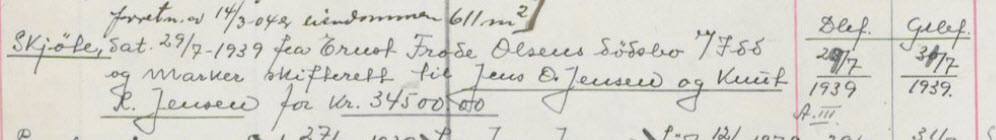 forretn. av 14/3-04 er eiendommen 611 m²]
Skjöte, dat. 29/7-1939 fra Ernst Frode Olsens dödsbo v/Idd
og Marker skifterett til Jens O. Jensen og Knut
R. Jensen for kr. 34500 00
Dlef. Gslef.
29/7 31/7
1939 1939.
A. III.